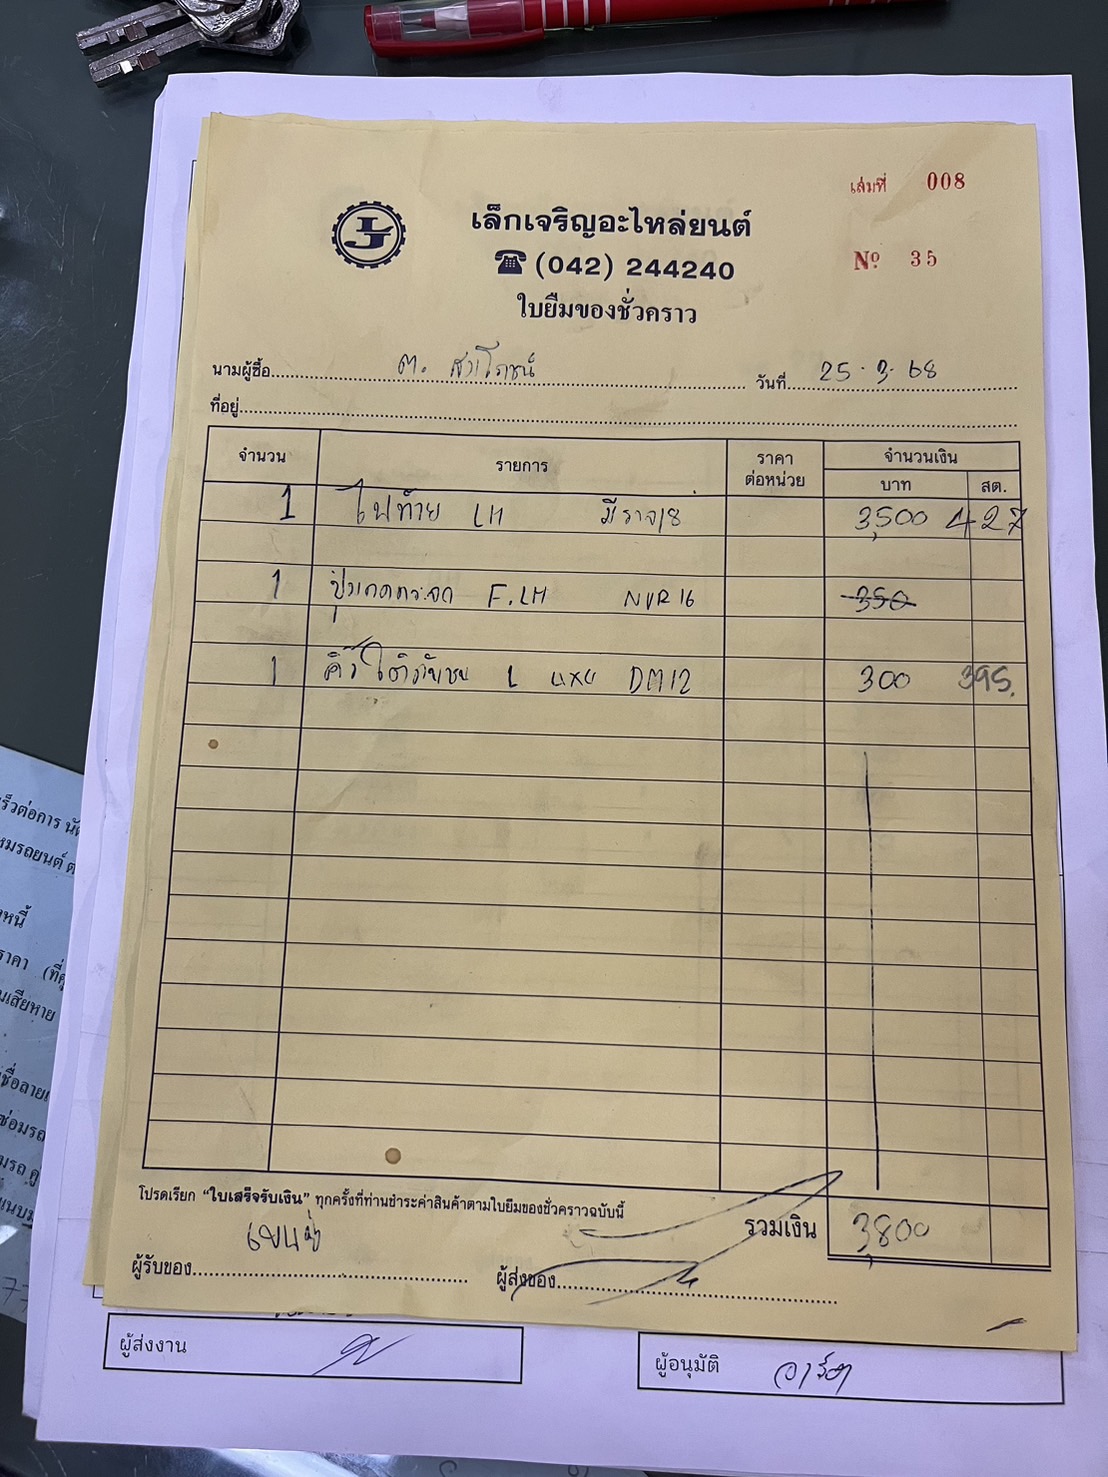 เล่มที่ 008
เล็กเจริญอะไหล่ยนต์
LJ
(042) 244240
Nº 35
ใบยืมของชั่วคราว
นามผู้ซื้อ ต. สาโรชน์ วันที่ 25.3.68
ที่อยู่
จำนวน รายการ ราคาต่อหน่วย จำนวนเงิน
บาท สต.
1 ไฟท้าย LH มีราจ18 3,500 427
1 ปุ่มกดกระจก F.LH NVR16 350
1 คิ้วโต L แคป DM12 300 395.
โปรดเรียก “ใบเสร็จรับเงิน” ทุกครั้งที่ท่านชำระค่าสินค้าตามใบยืมของชั่วคราวฉบับนี้
รวมเงิน 3,800
ผู้รับของ
ผู้ส่งของ
ผู้ส่งงาน
ผู้อนุมัติ
ร็วต่อการ นัด
หมรถยนต์ ต
าหนี้
ราคา (ที่
นเสียหาย
ชื่อลาย
ซ่อมรถ
มรถ
แนบ
77